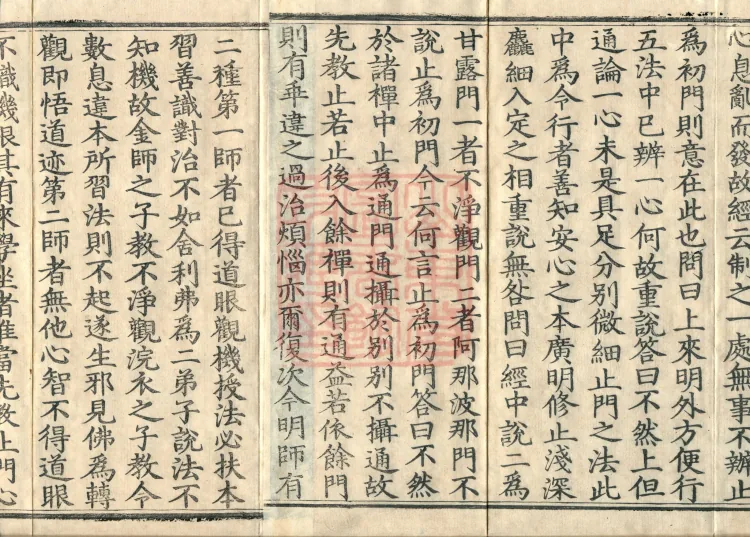 心息亂而發故經云制之一處無事不辨止
爲初門則意在此也問曰上來明外方便行
五法中已辨一心何故重說答曰不然上但
通論一心未是具足分別微細止門之法此
中爲令行者善知安心之本廣明修止淺深
麤細入定之相重說無咎問曰經中說二爲
甘露門一者不淨觀門二者阿那波那門不
說止爲初門今云何言止爲初門答曰不然
於諸禪中止爲通門通攝於別別不攝通故
先教止若止後入餘禪則有通益若依餘門
則有乖違之過治煩惱亦爾復次今明師有
二種第一師者已得道眼觀機授法必扶本
習善識對治不如舍利弗爲二弟子說法不
知機故金師之子教不淨觀浣衣之子教令
數息違本所習法則不起遂生邪見佛爲轉
觀即悟道迹第二師者無他心智不得道眼
不識機根其有來學坐者唯當先教止門心